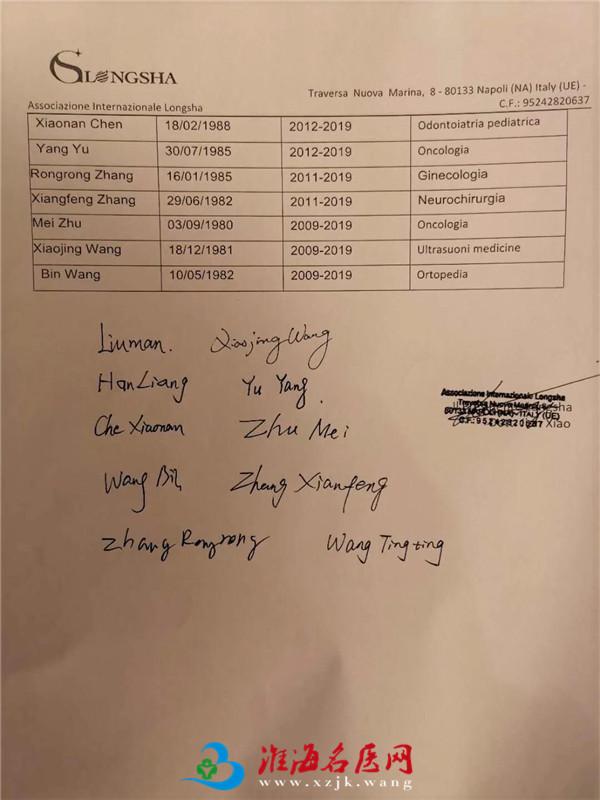 SLONGSHA
Traversa Nuova Marina, 8 - 80133 Napoli (NA) Italy (UE) -
Associazione Internazionale Longsha
C.F.: 95242820637
Xiaonan Chen 18/02/1988 2012-2019 Odontoiatria pediatrica
Yang Yu 30/07/1985 2012-2019 Oncologia
Rongrong Zhang 16/01/1985 2011-2019 Ginecologia
Xiangfeng Zhang 29/06/1982 2011-2019 Neurochirurgia
Mei Zhu 03/09/1980 2009-2019 Oncologia
Xiaojing Wang 18/12/1981 2009-2019 Ultrasuoni medicine
Bin Wang 10/05/1982 2009-2019 Ortopedia
Liuman. Xiaojing Wang
HanLiang Yu Yang
Che Xiaonan Zhu Mei
Wang Bin Zhang Xianfeng
Zhang Rongrong Wang Tingting
Associazione Internazionale Longsha
Traversa Nuova Marina, 8
80133 NAPOLI (NA) - ITALY (UE)
C.F. 95242820637
Xiao
淮海名医网
www.xzjk.wang